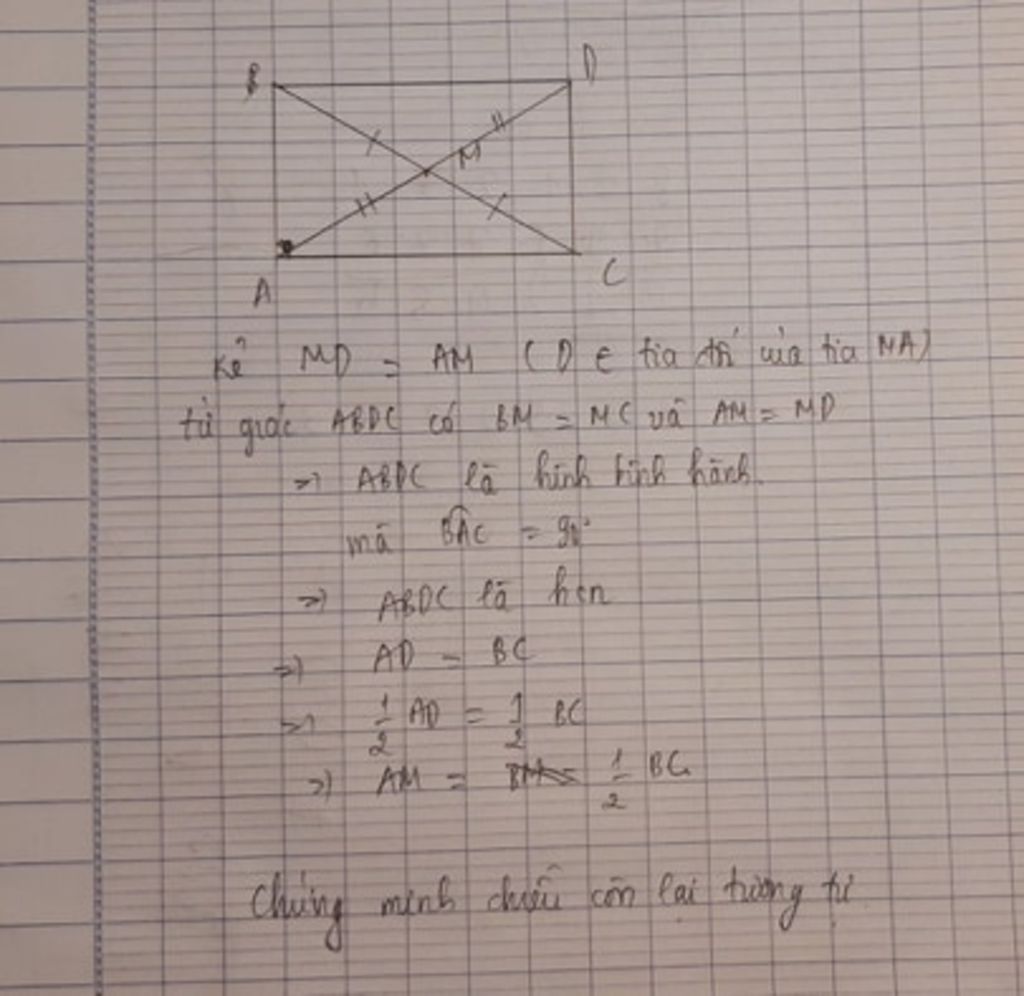 B D
M
A C
Kẻ MD = AM (D ∈ tia đối của tia MA)
tứ giác ABDC có BM = MC và AM = MD
=> ABDC là hình bình hành.
mà BAC = 90°
=> ABDC là hcn
=> AD = BC
=> 1/2 AD = 1/2 BC
=> AM = 1/2 BC
Chứng minh chiều còn lại tương tự